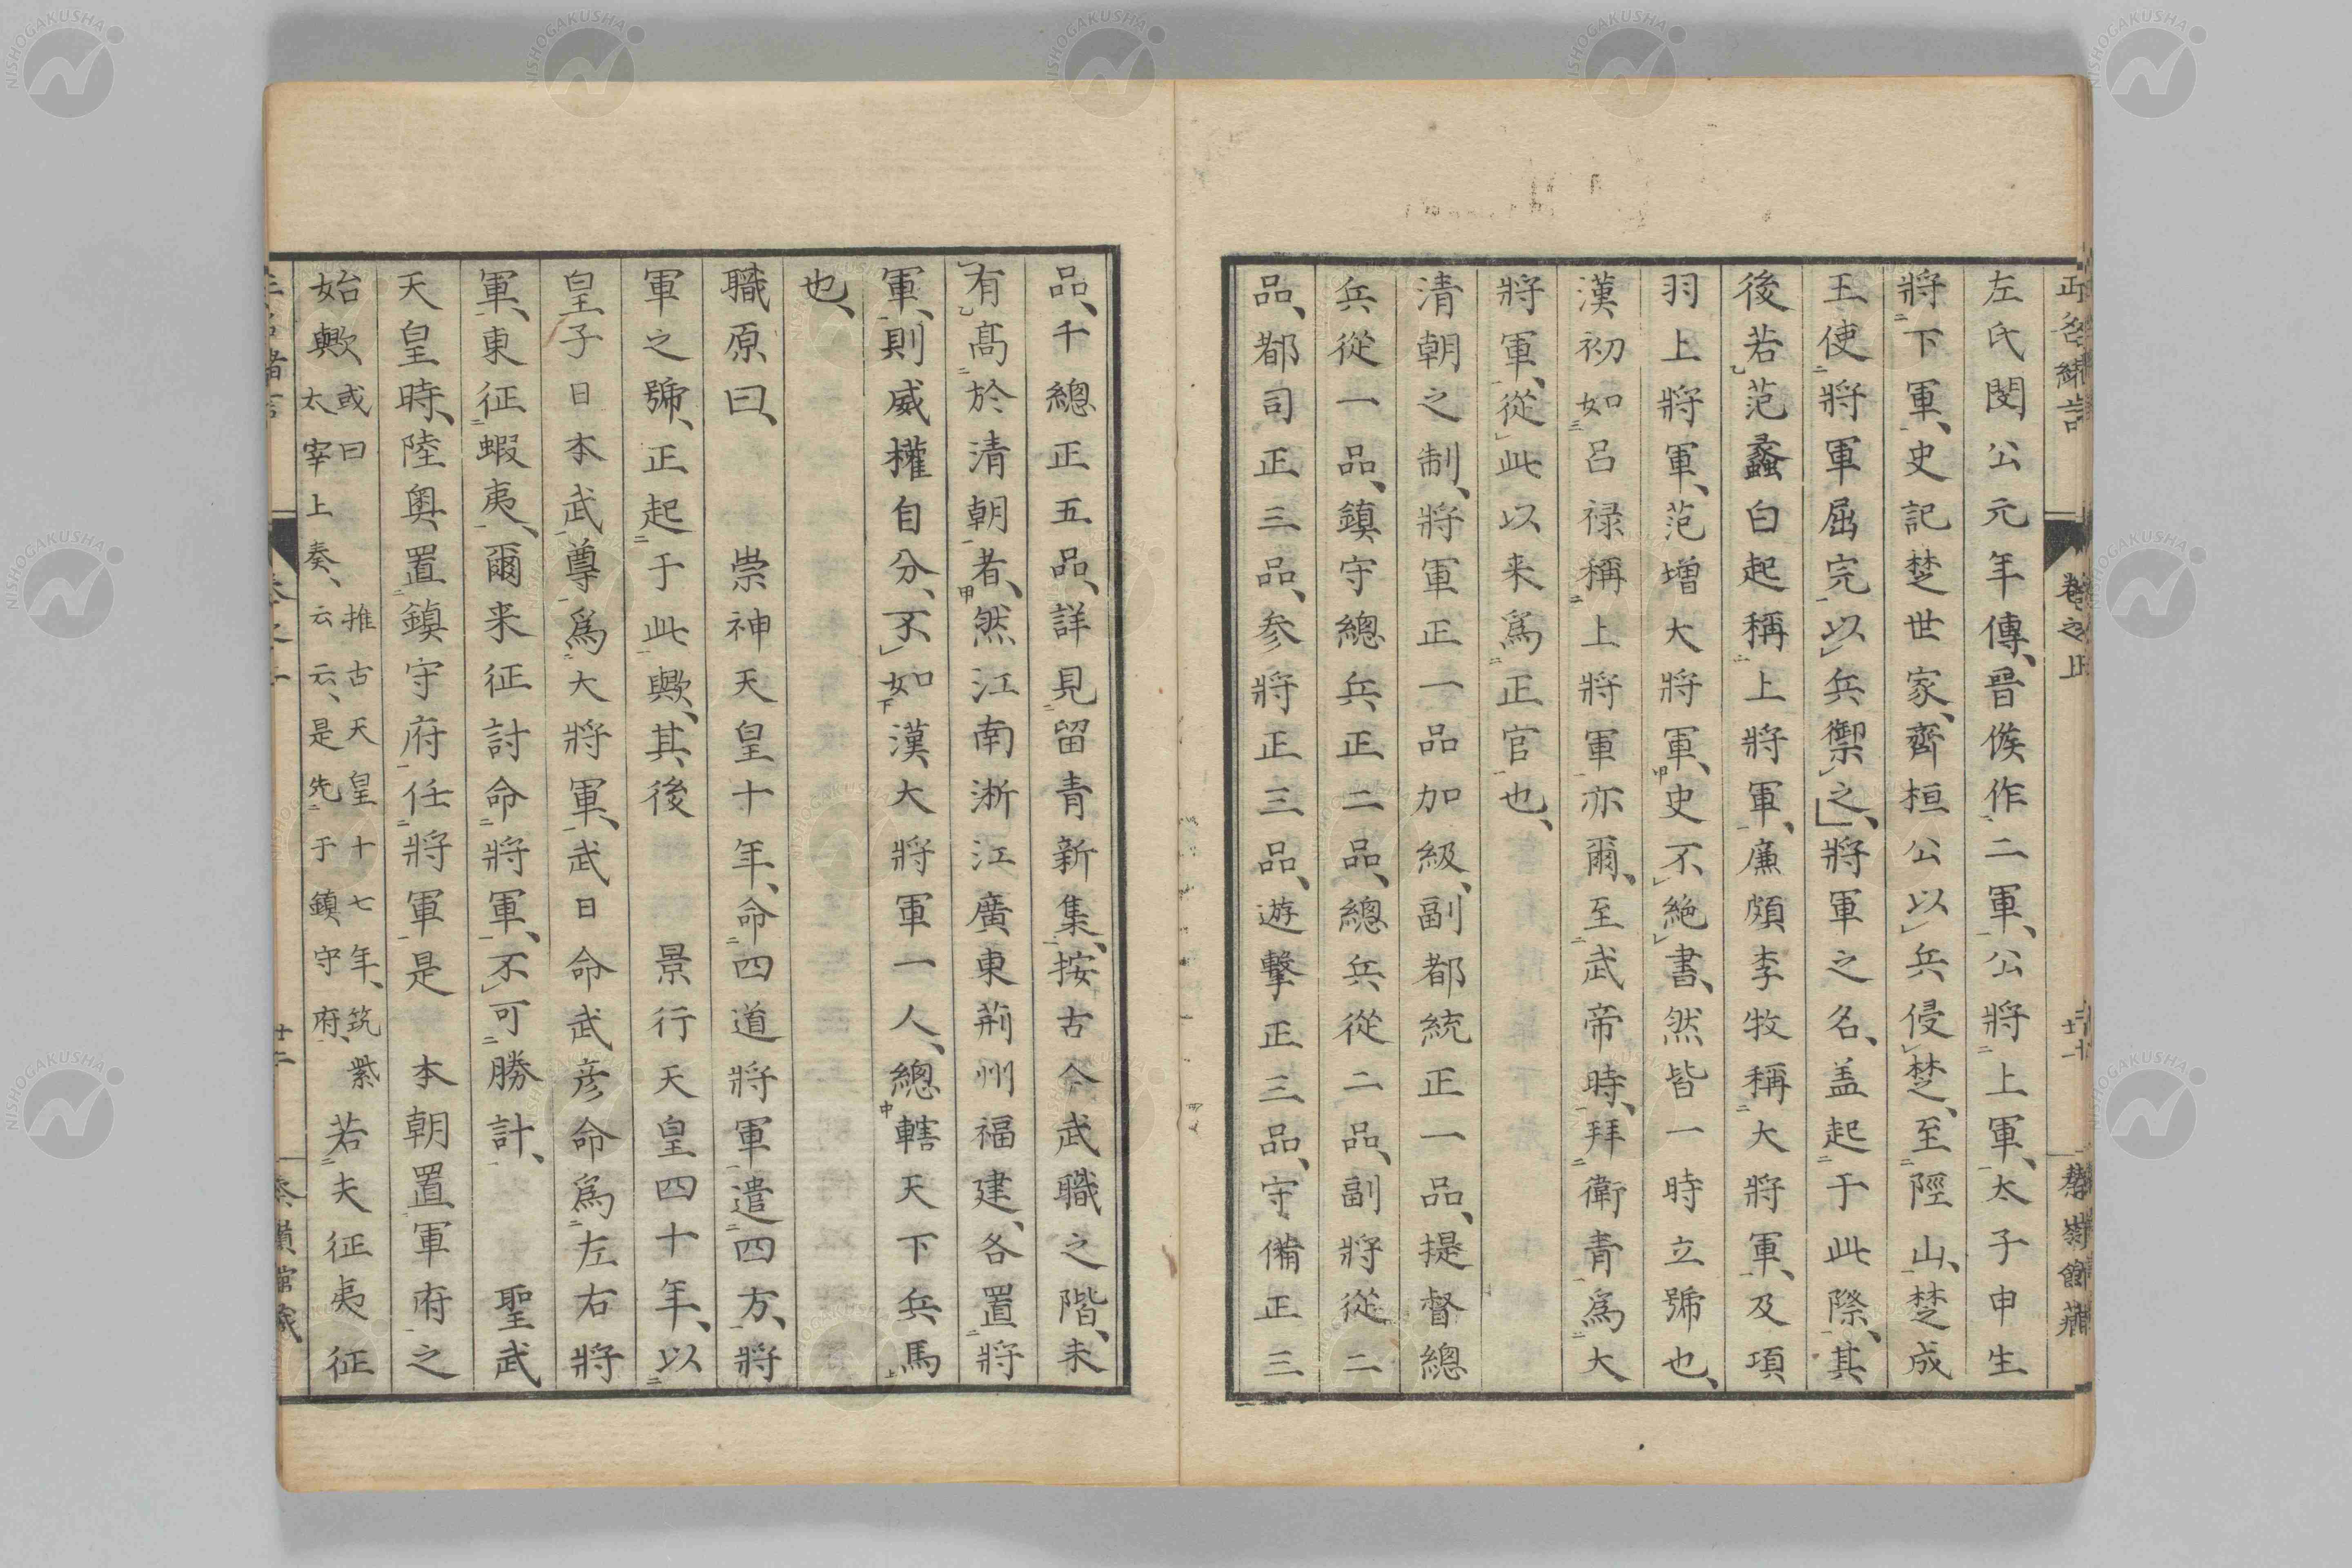 左氏閔公元年傳、晉侯作二軍、公將上軍、太子申生
將下軍、史記楚世家、齊桓公以兵侵楚、至陘山、楚成
王使將軍屈完以兵禦之、將軍之名、盖起于此際、其
後若范蠡白起稱上將軍、廉頗李牧稱大將軍、及項
羽上將軍、范增大將軍、史不絶書、然皆一時立號也、
漢初如呂禄稱上將軍亦爾、至武帝時、拜衛青爲大
將軍、從此以来爲正官也、
清朝之制、將軍正一品加級、副都統正一品、提督總
兵從一品、鎮守總兵正二品、總兵從二品、副將從二
品、都司正三品、参將正三品、遊擊正三品、守備正三
品、千總正五品、詳見留青新集、按古今武職之階、未
有高於清朝者、然江南淅江廣東荊州福建、各置將
軍、則威權自分、不如漢大將軍一人、總轄天下兵馬
也、
職原曰、 崇神天皇十年、命四道將軍遣四方、將
軍之號、正起于此歟、其後 景行天皇四十年、以
皇子日本武尊爲大將軍、武日命武彦命爲左右將
軍、東征蝦夷、爾来征討命將軍、不可勝計、 聖武
天皇時、陸奥置鎮守府任將軍是 本朝置軍府之
始歟或曰 推古天皇十七年、筑紫太宰上奏、云云、是先于鎮守府、若夫征夷征